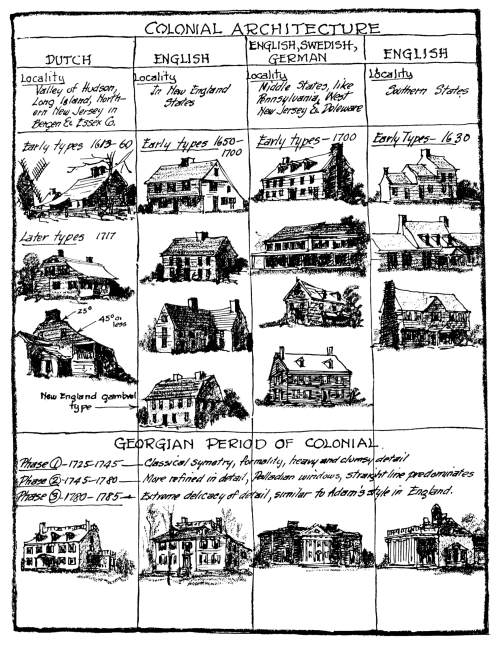 COLONIAL ARCHITECTURE
DUTCH
ENGLISH
ENGLISH, SWEDISH,
GERMAN
ENGLISH
Locality
Valley of Hudson,
Long Island, North-
ern New Jersey in
Bergen & Essex Co.
Locality
In New England
States
Locality
Middle States, like
Pennsylvania, West
New Jersey & Deleware
Locality
Southern States
Early types 1613-60
Early types 1650-
1700
Early types - 1700
Early Types - 1630
Later types 1717
25°
45° or
less
New England gambrel
type
GEORGIAN PERIOD OF COLONIAL
Phase ① - 1725-1745 — Classical symetry, formality, heavy and clumsy detail
Phase ② - 1745-1780 — More refined in detail, Palladian windows, straight line predominates
Phase ③ - 1780-1785 → Extreme delicacy of detail, similar to Adam's style in England.